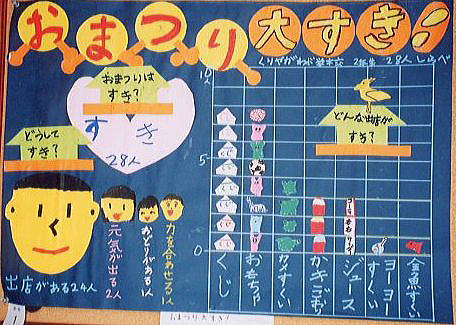 おまつり大すき!
くりやがわ小学校 2年生 28人しらべ
おまつりは
すき?
すき
28人
どうして
すき?
どんな出店が
すき?
10人
5
0
出店がある24人
元気が出る2人
おどりがある1人
力を合わせる1人
くじ
おもちゃ
カメすくい
かきごおり
ジュース
ヨーヨーすくい
金魚すくい
おまつり大すき!